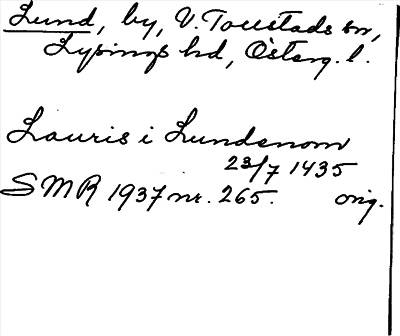 Lund, by, V. Tollstads sn,
Lysings hd, Österg. l.
Lauris i Lundenom
23/7 1435
SMR 1937 nr. 265. orig.